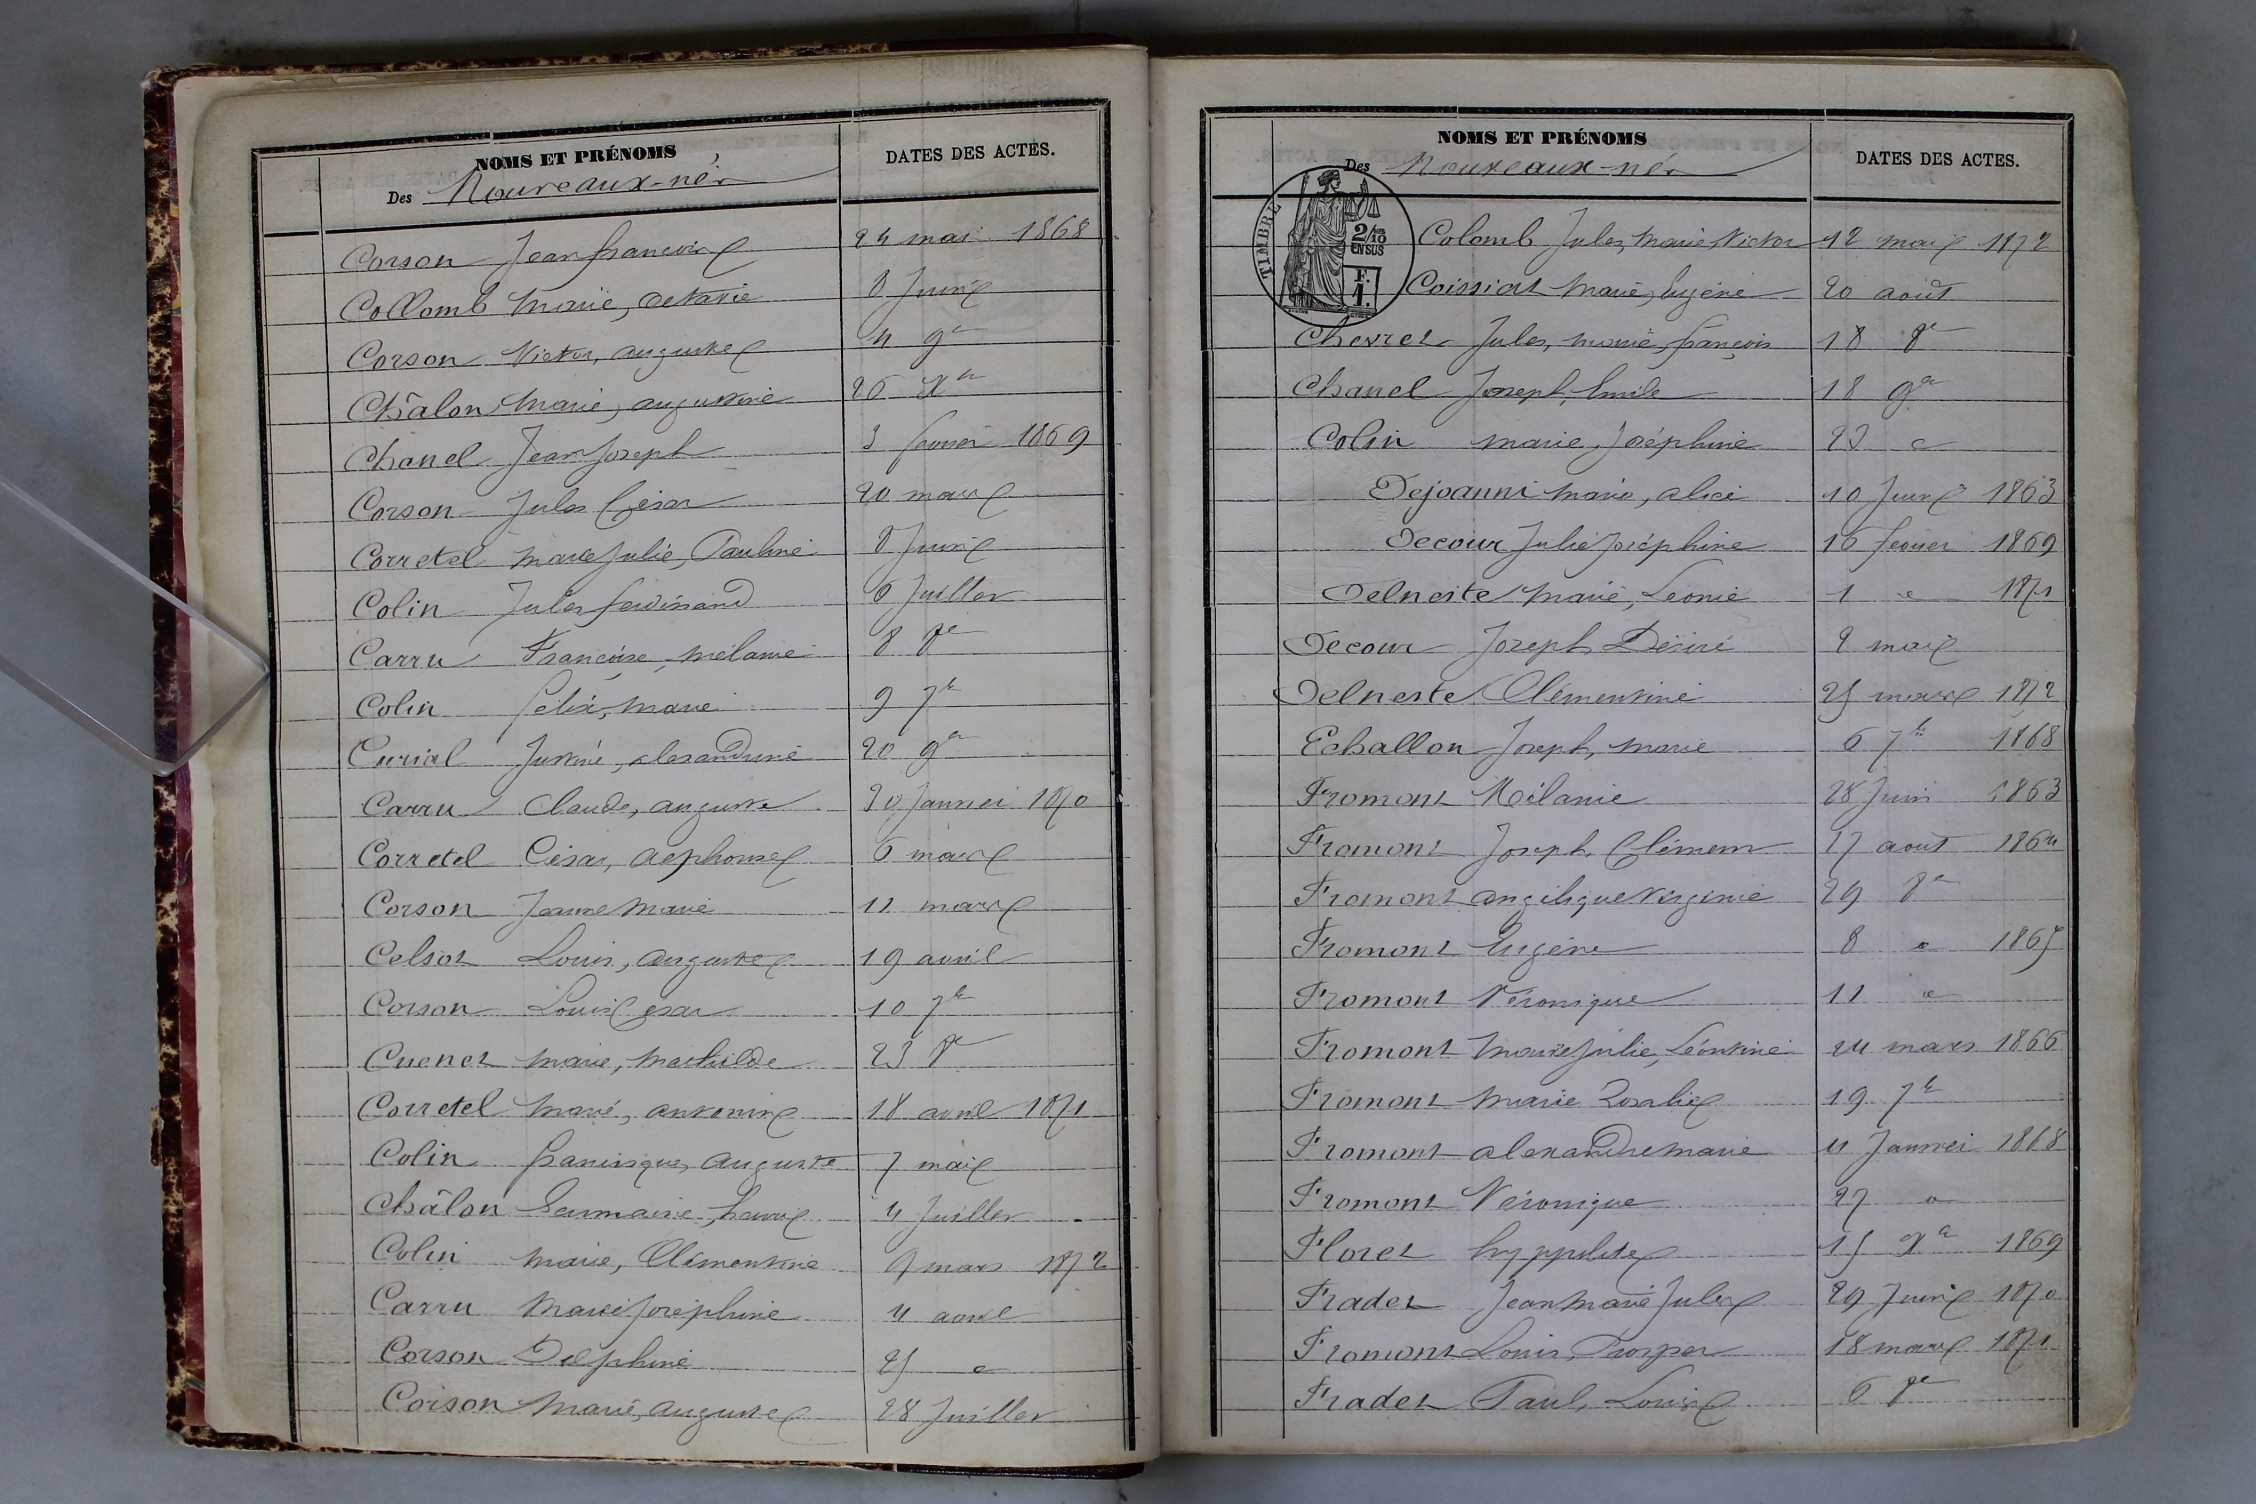 NOMS ET PRÉNOMS
Des Nouveaux-nés
DATES DES ACTES.
Corson Jean françois 24 mai 1868
Collomb Marie, octavie 8 Juin
Corson Victor, auguste 4 9e
Châlon Marie, augustine 26 Xe
Chanel Jean Joseph 3 fevrier 1869
Corson Jules César 20 mars
Corretel Marie Julie, Pauline 8 Juin
Colin Jules ferdinand 6 Juillet
Carru Françoise, mélanie 8 8e
Colin felix, Marie 9 7e
Curial Justine, alexandrine 20 9e
Carru Claude, auguste 30 Janvier 1870
Corretel César, alphonse 6 mars
Corson Jeanne Marie 11 mars
Celsot Louis, auguste 19 avril
Corson Louis César 10 7e
Cuenet Marie, Mathilde 23 8e
Corretel Marie, antonin 18 avril 1871
Colin francisque, auguste 7 mai
Châlon Germaine, 4 Juillet
Colin Marie, Clémentine 9 mars 1872
Carru Marie Joséphine 4 avril
Corson Delphine 25 e
Coison Marie, auguste 28 Juillet
NOMS ET PRÉNOMS
Des Nouveaux-nés
DATES DES ACTES.
TIMBRE
2/10
EN SUS
F.
1.
Colomb Jules, Marie, Victor 12 mai 1872
Coissiat Marie, Eugène 20 août
Chevret Jules, Marie, françois 18 8e
Chanel Joseph, Emile 18 9e
Colin Marie, Joséphine 23 e
Dejoanni Marie, alice 10 Juin 1863
Decour Julie Joséphine 16 fevrier 1869
Delneste Marie, Léonie 1 e 1871
Decour Joseph Désiré 2 mai
Delneste Clémentine 25 mars 1872
Echallon Joseph, Marie 6 7e 1868
Fromont Mélanie 28 Juin 1863
Fromont Joseph, Clément 17 août 1864
Fromont angélique Virginie 29 8e
Fromont Eugène 8 e 1865
Fromont Véronique 11 e
Fromont Marie Julie, Léontine 24 mars 1866
Fromont Marie Rosalie 19 7e
Fromont alexandre Marie 4 Janvier 1868
Fromont Véronique 27 e
Floret hyppolite 15 Xe 1869
Fradet Jean Marie Jules 29 Juin 1870
Fromont Louis, Prosper 18 mars 1871
Fradet Paul, Louis 6 8e